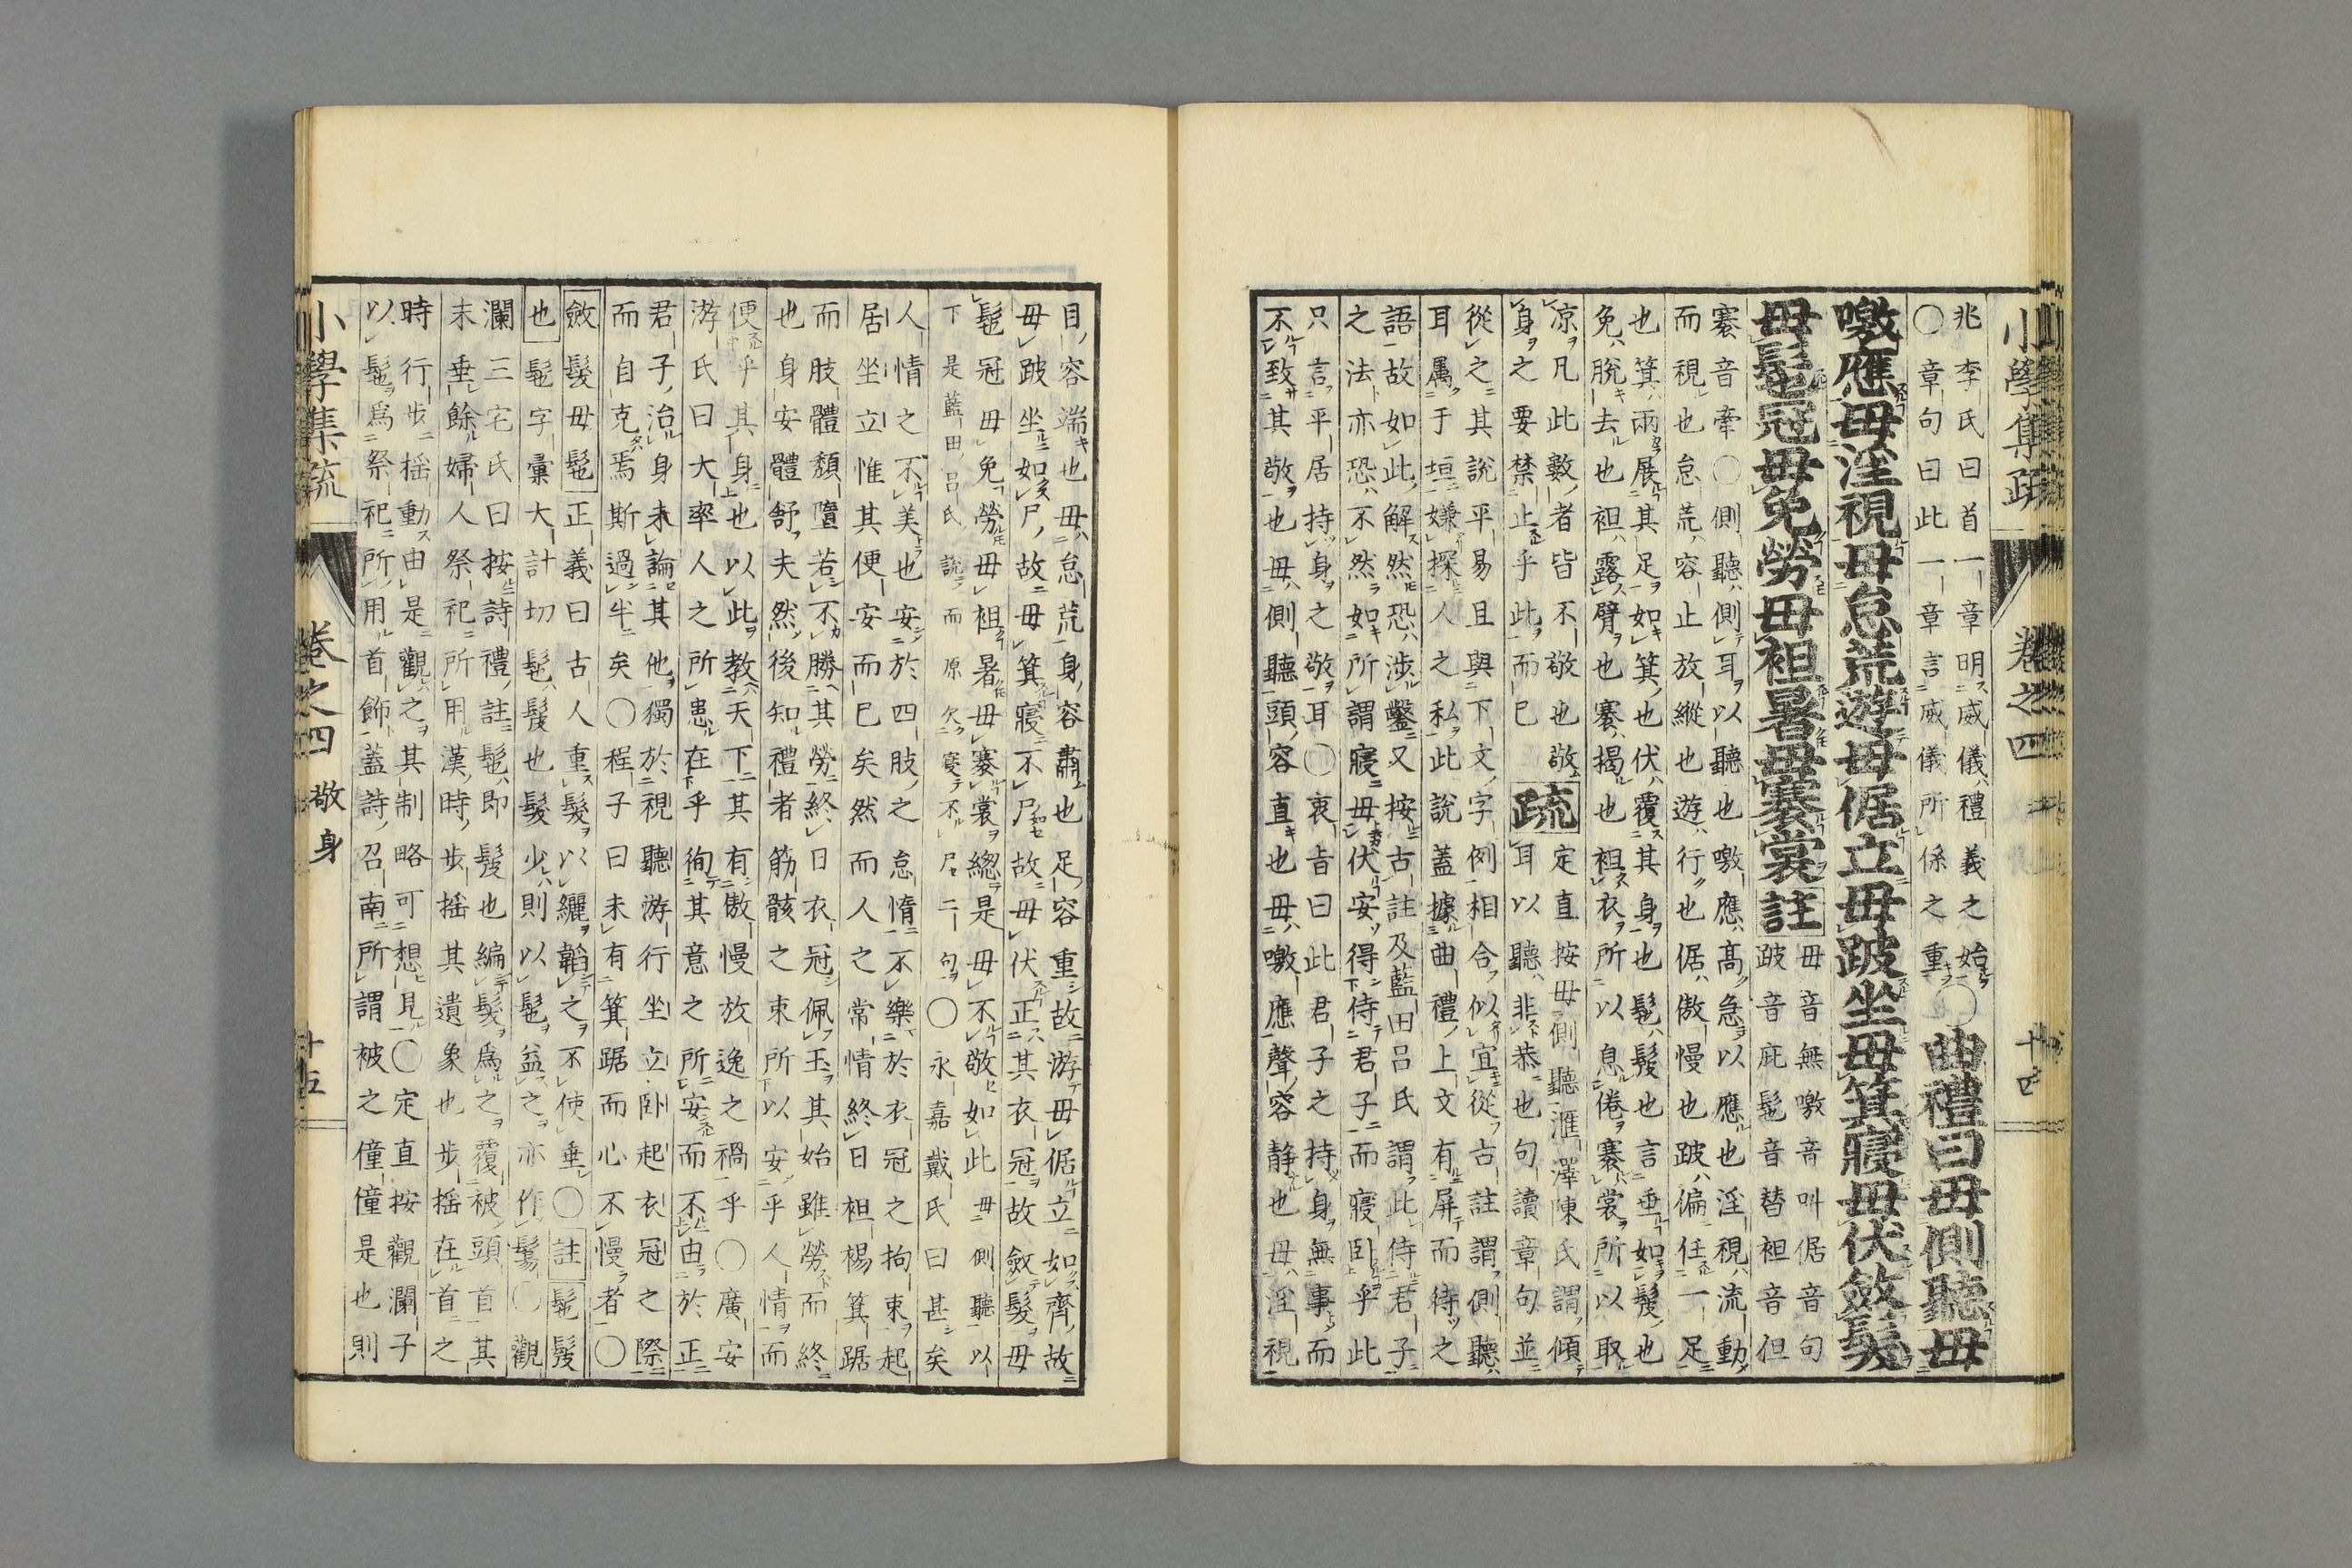 小學集疏 卷之四 十四
兆李氏曰首一章明威儀禮義之始〇曲禮曰毋側聽毋
〇章句曰此一章言威儀所係之重
噭應毋淫視毋怠荒遊毋倨立毋跛坐毋箕寢毋伏斂髮
毋髢冠毋免勞毋袒暑毋褰裳註
毋音無噭音叫倨音句
跛音庇髢音替袒音但
褰音牽〇側聽側耳以聽也噭應高急以應也淫視流動
而視也怠荒容止放縱也遊行也倨傲慢也跛偏任一足
也箕兩展其足如箕也伏覆其身也髢髲也言垂如髲也
免脫去也袒露臂也褰揭也袒衣所以息倦褰裳所以取
凉凡此數者皆不敬也敬
身之要禁止乎此而已
疏
定直按毋側聽滙澤陳氏謂傾
耳以聽非恭也句讀章句並
從之其說平易且與下文字例相合似宜從古註謂側聽
耳属于垣嫌探人之私此說蓋據曲禮上文有屏而待之
語故如此解然恐涉鑿又按古註及藍田呂氏謂此侍君子
之法亦恐不然如所謂寢毋伏安得侍君子而寢卧乎此
只言平居持身之敬耳〇衷旨曰此君子之持身無事而
不致其敬也毋側聽頭容直也毋噭應聲容静也毋淫視
目容端也毋怠荒身容肅也足容重故游毋倨立如齊故
毋跛坐如尸故毋箕寢不尸故毋伏正其衣冠故斂髮毋
髢冠毋免勞毋袒暑毋褰裳總是毋不敬如此毋側聽以
下是藍田呂氏說而原欠寢不尸二句〇永嘉戴氏曰甚矣
人情之不美也安於四肢之怠惰不樂於衣冠之拘束起
居坐立惟其便安而已矣然而人之常情終日袒裼箕踞
而肢體頹墮若不勝其勞終日衣冠佩玉其始雖勞而終
也身安體舒夫然後知禮者筋骸之束所以安乎人情而
便乎其身也以此教天下其有傲慢放逸之禍乎〇廣安
游氏曰大率人之所患在乎徇其意之所安而不由於正
君子治身未論其他獨於視聽游行坐立卧起衣冠之際
而自克焉斯過半矣〇程子曰未有箕踞而心不慢者〇
斂髮毋髢正義曰古人重髮以纚韜之不使垂〇註髢髲
也髢字彙大計切髢髲也髮少則以髢益之亦作鬄〇觀
瀾三宅氏曰按詩禮註髢即髲也編髮爲之覆被頭首其
末垂餘婦人祭祀所用漢時步摇其遺象也步摇在首之
時行步摇動由是觀之其制略可想見〇定直按觀瀾子
以髢爲祭祀所用首飾蓋詩召南所謂被之僮僮是也則
小學集疏 卷之四 敬身 十五